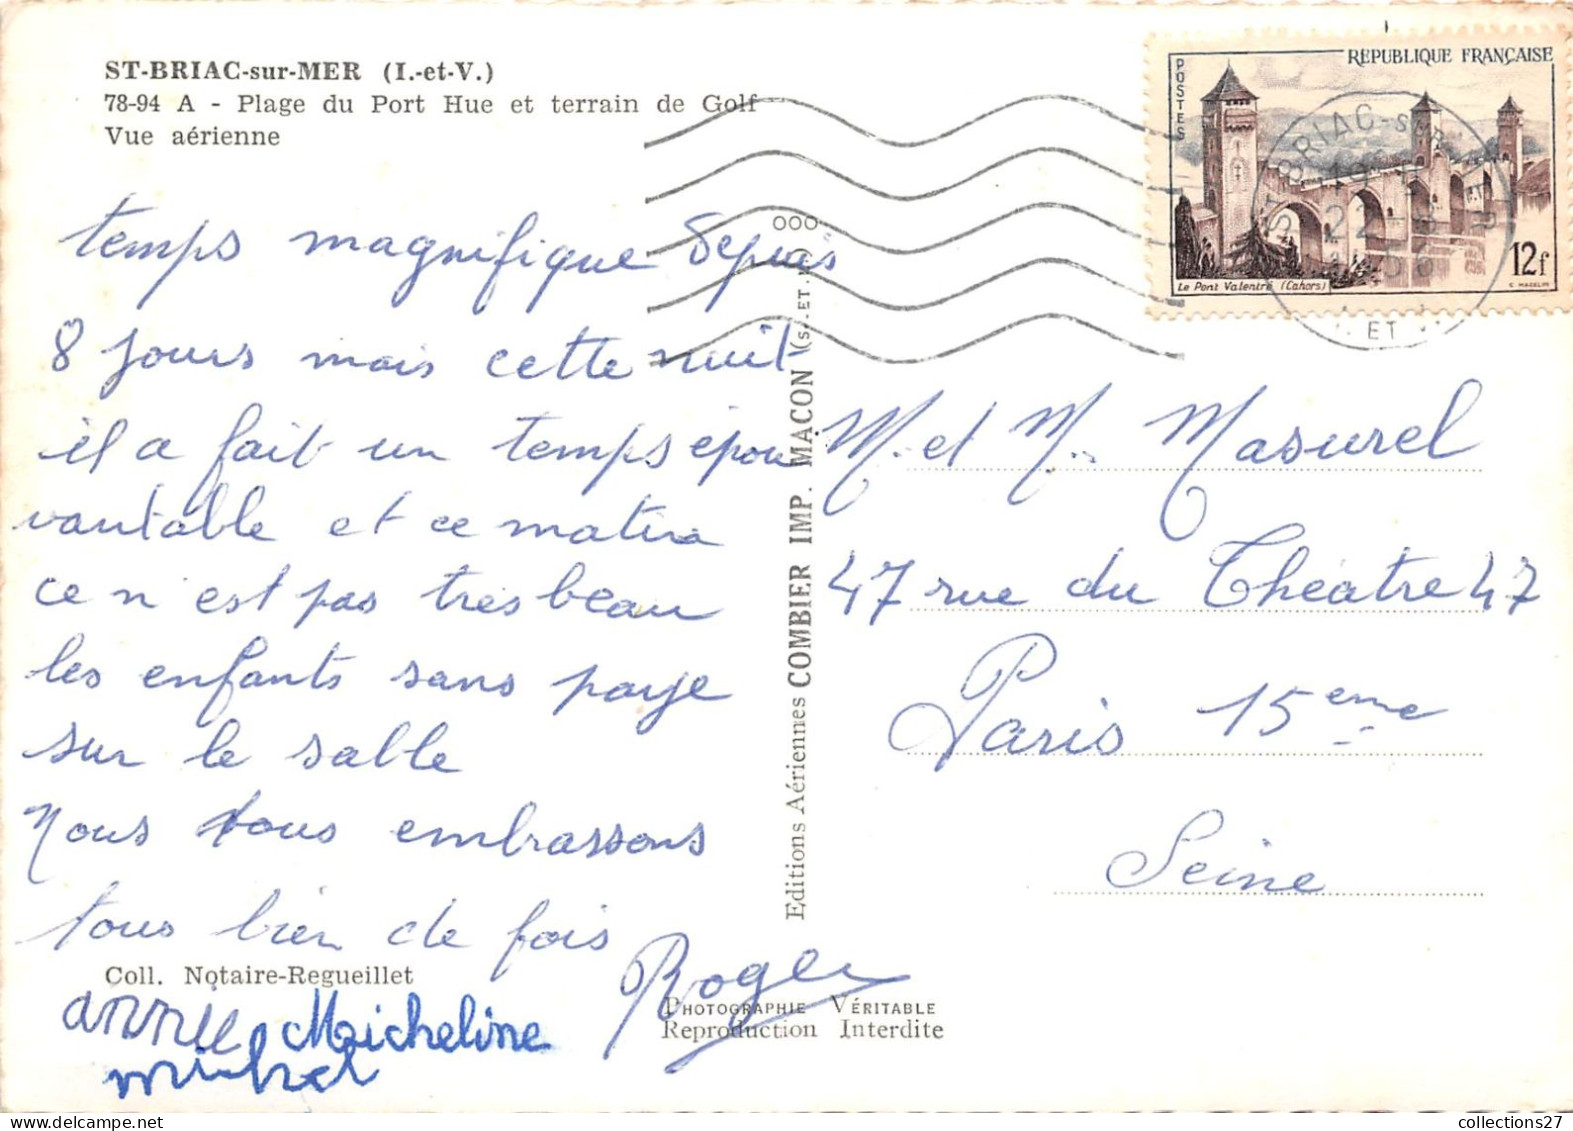 ST-BRIAC-sur-MER (I.-et-V.)
78-94 A - Plage du Port Hue et terrain de Golf
Vue aérienne
temps magnifique depuis
8 jours mais cette nuit
il a fait un temps épou
vantable et ce matin
ce n'est pas très beau
les enfants sans paye
sur le sable
Nous tous embrassons
tous bien de fois
Roger
Coll. Notaire-Regueillet
annie Micheline
michel
Editions Aériennes COMBIER IMP. MACON (S.-ET-
PHOTOGRAPHIE VÉRITABLE
Reproduction Interdite
POSTES
RÉPUBLIQUE FRANÇAISE
Le Pont Valentré (Cahors)
12f
ST BRIAC-SUR
22
ET
M. et M. Masurel
47 rue du Théatre 47
Paris 15eme
Seine
collections27